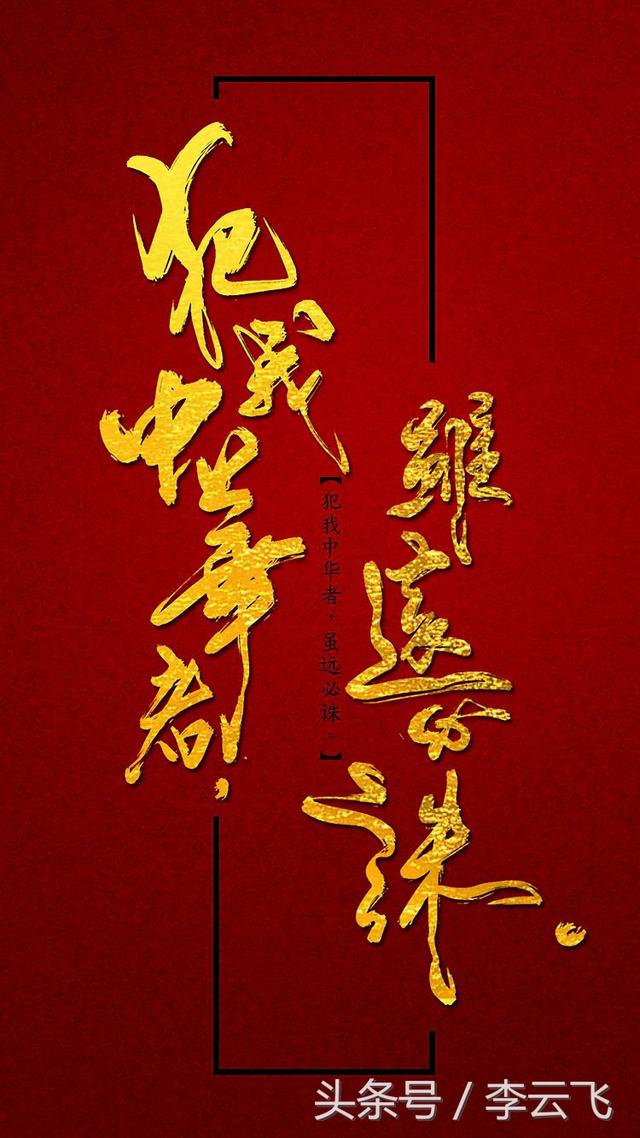 犯我中華者，
雖遠必诛。
【犯我中华者，虽远必诛。】
头条号 / 李云飞